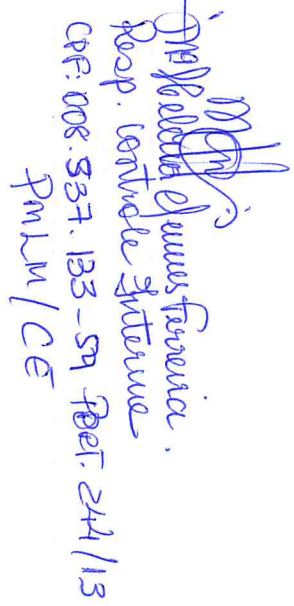 Mª Heloiza Gomes Ferreira.
Resp. Controle Interno
CPF: 008.537.133-59 Port. 244/13
PMLM/CE